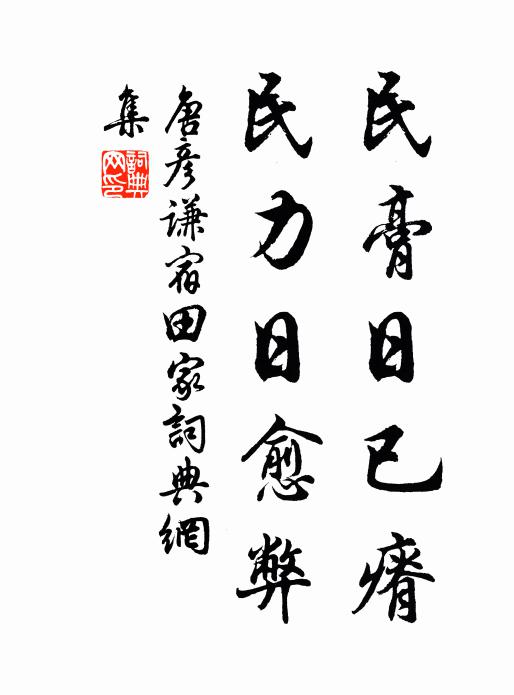 民膏日已瘠
民力日愈弊
唐彦謙宿田家詞典網
集
詞典網印